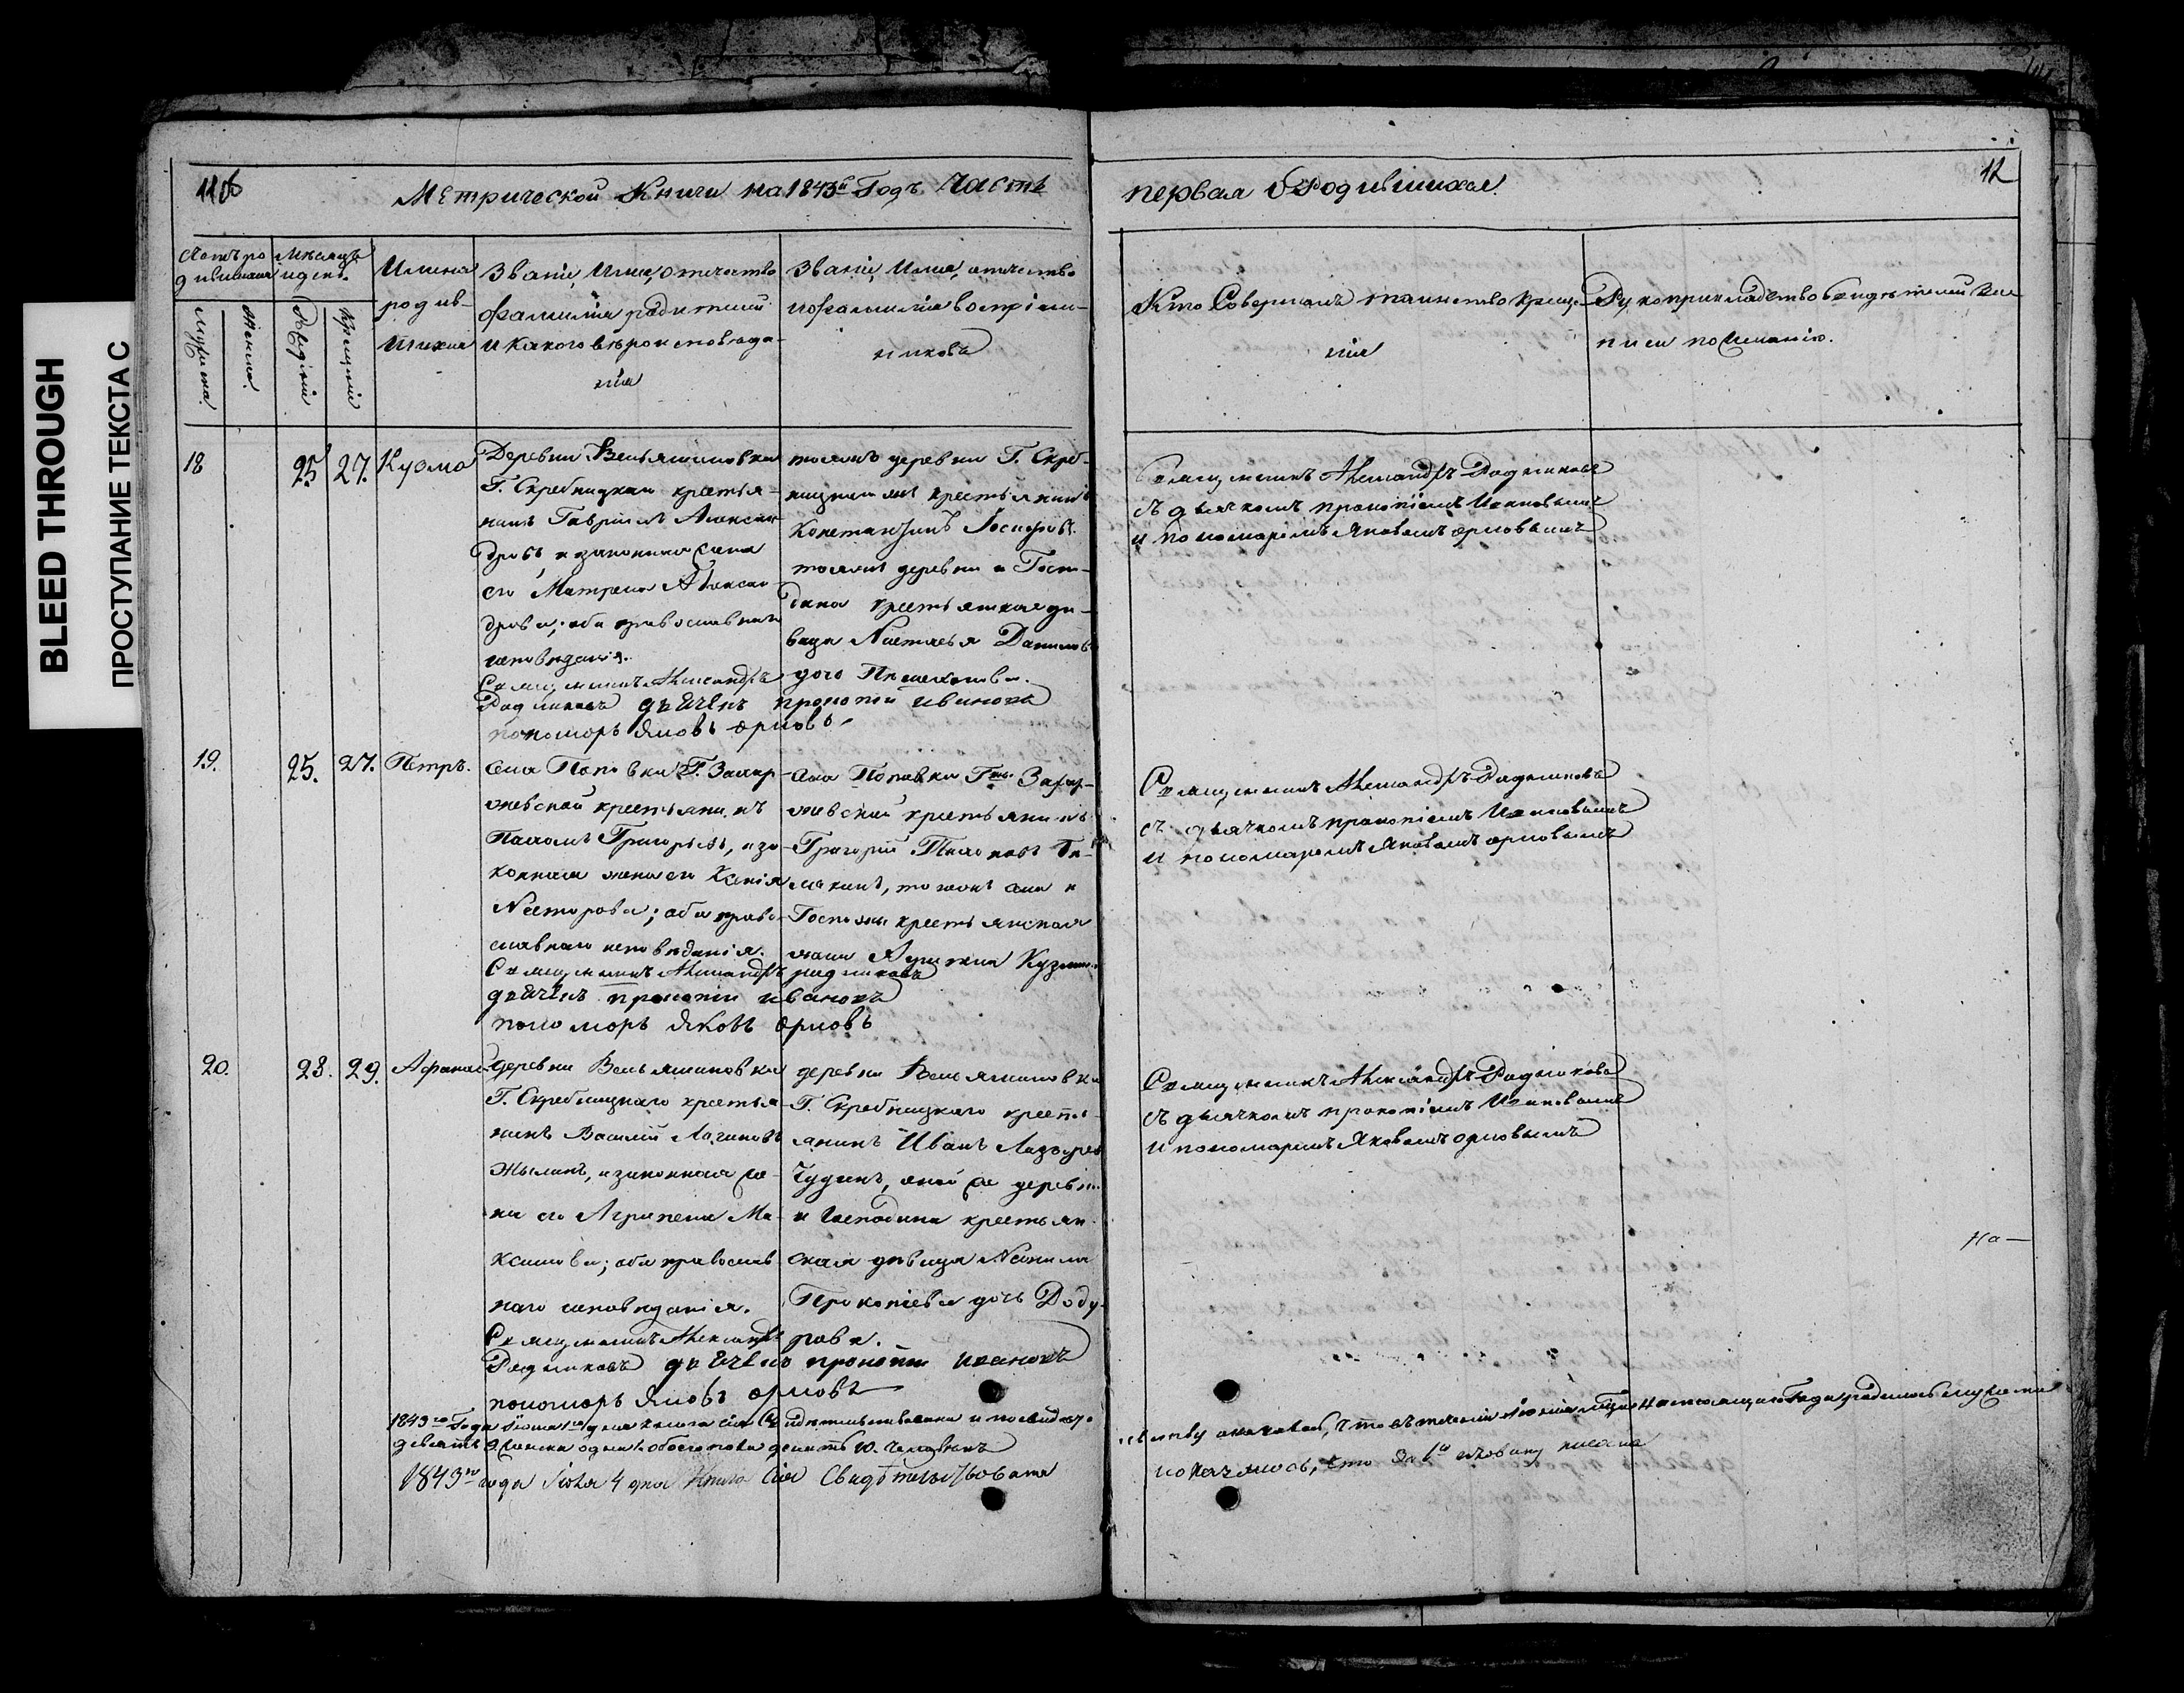 BLEED THROUGH
ПРОСТУПАНИЕ ТЕКСТА С
Метрической Книги на 1843й Годъ Часть
первая о Родившихся.
12
Мѣсяцъ
и день.
Имена
родив-
шихся
Званіе, Имя, отчество
фамилія родителей
и какого вѣроисповѣда-
нія
Званіе, Имя, отчество
и фамилія воспріем-
никовъ
Кто Совершалъ таинство Креще-
нія
Рукоприкладство свидѣтелей
писи по желанію.
18
25
27.
Кузма
Деревни Вельяминовки
Г. Скребицкаго крестья-
нинъ Гавріилъ Алексан-
дровъ, и законная жена
его Матрена Алексан-
дрова; оба православнаго
исповѣданія.
Священникъ Александръ
Родниковъ дьячекъ прокопій ивановъ
пономорь Яковъ орловъ
тояже деревни Г. Скре-
бицкаго крестьянинъ
Константинъ Іосифовъ
тояже деревни и Госпо-
дина крестьянская дѣ-
вица Настасья Данилов
Священникъ Александръ Родниковъ
съ дьячкомъ прокопіемъ Ивановымъ
и пономаремъ Яковомъ орловымъ
19.
25.
27.
Петръ.
села Поповки Г. Захар-
жевской крестьянинъ
Григорьевъ, и за-
конная жена его Ксенія
Несторова; оба право-
славнаго исповѣданія.
Священникъ Александръ родниковъ
дьячекъ прокопій ивановъ
пономорь Яковъ орловъ
села Поповки Гжи Захар-
жевской крестьянинъ
Григорій
тогоже села и
Госпожи крестьянская
жена Кузмин
Священникъ Александръ Родниковъ
съ дьячкомъ прокопіемъ Ивановымъ
и пономаремъ Яковомъ орловымъ
20.
28.
29.
Афанас
деревни Вельяминовки
Г. Скребицкаго крестья
нинъ Василій Логиновъ
Жылинъ, и законная же-
на его Агрипена Ма-
ксимова; оба правосла
внаго исповѣданія.
Священникъ Александръ
Родниковъ дьячекъ прокопій ивановъ
пономорь Яковъ орловъ
деревни Вельяминовки
Г. Скребицкаго кресть-
янинъ Иванъ Лазарев
Чудинъ, тойже деревни
и Господина крестьян
ская дѣвица Неонила
Прокопіева дочь Доду-
рова.
Священникъ Александръ Родниковъ
съ дьячкомъ прокопіемъ Ивановымъ
и пономаремъ Яковомъ орловымъ
На—
1843го Года Іюля 1го дня книга сія свидѣтельствована и по
оказалось, что въ теченіи Іюня мѣсяца настоящаго Года родилось мужеска
девять 9 женска одна 1 обоего пола десять 10. человѣкъ
1843го года Іюля 4 дня книга Сія Свидѣтельствована